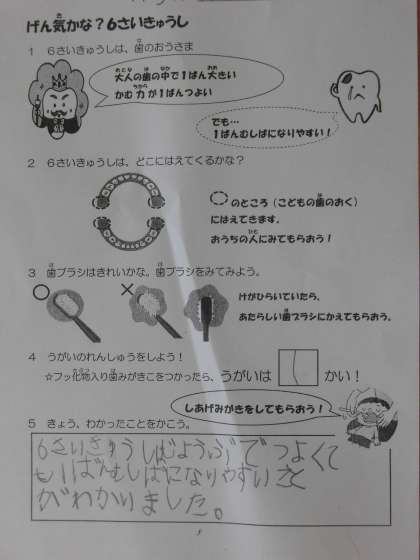 げん気かな？6さいきゅうし
1　6さいきゅうしは、歯のおうさま
大人の歯の中で1ばん大きい
かむ力が1ばんつよい
でも…
1ばんむしばになりやすい！
2　6さいきゅうしは、どこにはえてくるかな？
のところ（こどもの歯のおく）
にはえてきます。
おうちの人にみてもらおう！
3　歯ブラシはきれいかな。歯ブラシをみてみよう。
○　×
けがひらいていたら、
あたらしい歯ブラシにかえてもらおう。
4　うがいのれんしゅうをしよう！
☆フッ化物入り歯みがきこをつかったら、うがいは 1 かい！
しあげみがきをしてもらおう！
5　きょう、わかったことをかこう。
6さいきゅうしはじょうぶでつよくて
も1ばんむしばになりやすいこと
がわかりました。